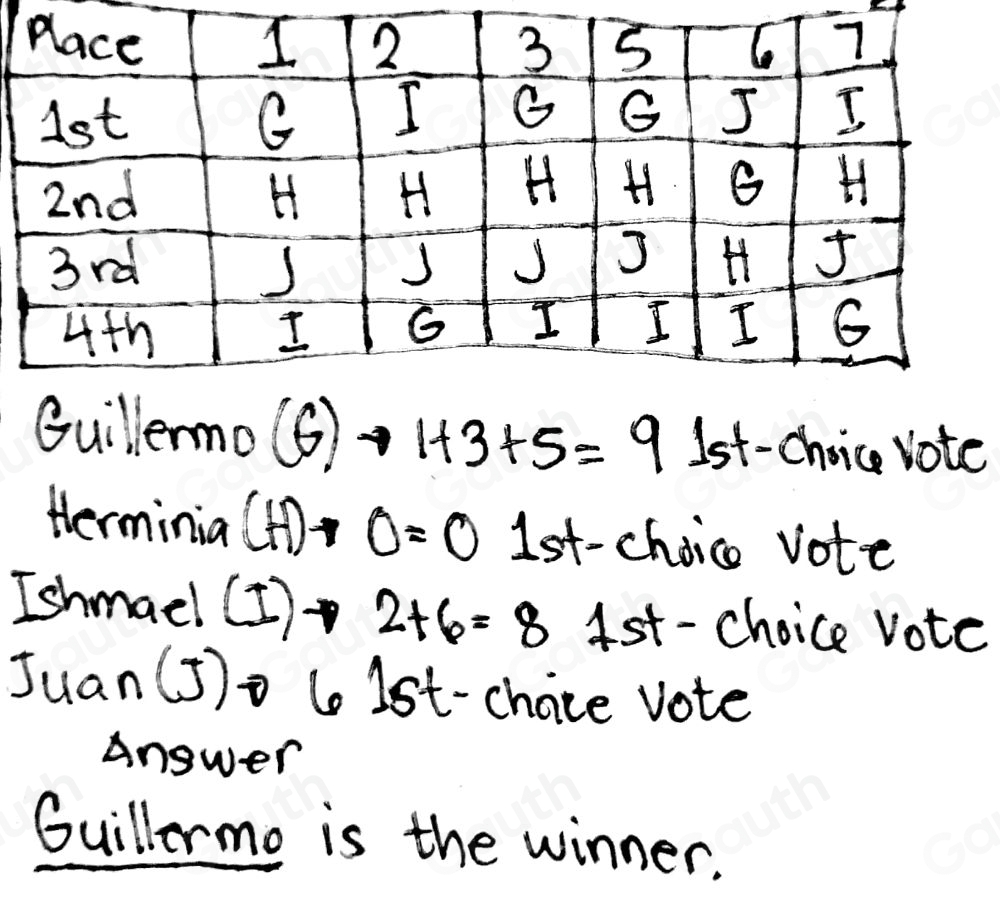 Place 1 2 3 5 6 7
1st G I G G J I
2nd H H H H G H
3rd J J J J H J
4th I G I I I G
Guillermo (G) → 1+3+5= 9 1st-choice vote
Herminia (H)→ 0=0 1st-choice vote
Ishmael (I)→ 2+6= 8 1st-choice vote
Juan (J)→ 6 1st-choice vote
Answer
Guillermo is the winner.